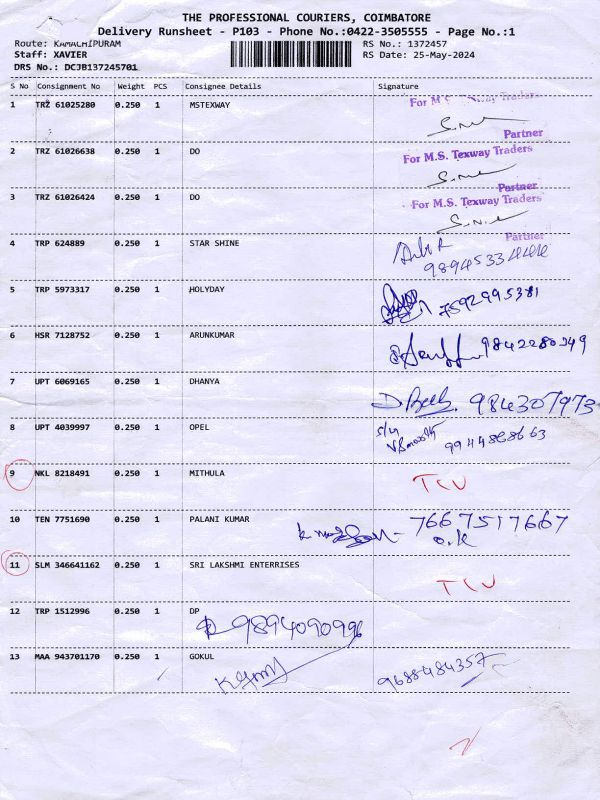 THE PROFESSIONAL COURIERS, COIMBATORE
Delivery Runsheet - P103 - Phone No.:0422-3505555 - Page No.:1
Route: KAMACHIPURAM RS No.: 1372457
Staff: XAVIER RS Date: 25-May-2024
DRS No.: DCJB137245701
S No Consignment No Weight PCS Consignee Details Signature
1 TRZ 61025280 0.250 1 MSTEXWAY For M.S. Texway Traders
Partner
2 TRZ 61026638 0.250 1 DO For M.S. Texway Traders
Partner
3 TRZ 61026424 0.250 1 DO For M.S. Texway Traders
Partner
4 TRP 624889 0.250 1 STAR SHINE
5 TRP 5973317 0.250 1 HOLYDAY 7592995381
6 HSR 7128752 0.250 1 ARUNKUMAR
7 UPT 6069165 0.250 1 DHANYA
8 UPT 4039997 0.250 1 OPEL
9 NKL 8218491 0.250 1 MITHULA
10 TEN 7751690 0.250 1 PALANI KUMAR 7667517667
o.k
11 SLM 346641162 0.250 1 SRI LAKSHMI ENTERRISES
12 TRP 1512996 0.250 1 DP
9894090996
13 MAA 943701170 0.250 1 GOKUL
9688484357